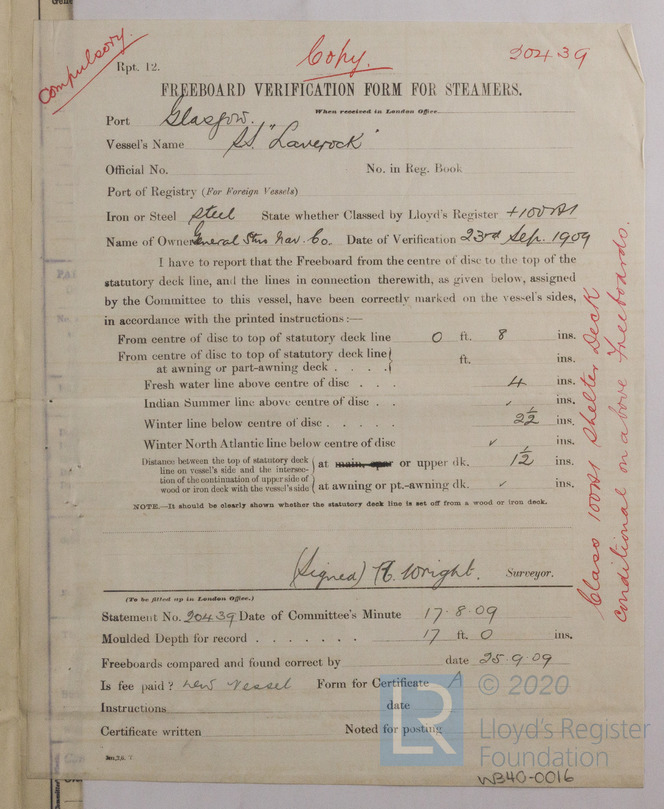 Compulsory.
Copy.
20439
Rpt. 12.
FREEBOARD VERIFICATION FORM FOR STEAMERS.
When received in London Office.
Port Glasgow.
Vessel's Name SS. "Laverock"
Official No. No. in Reg. Book
Port of Registry (For Foreign Vessels)
Iron or Steel Steel State whether Classed by Lloyd's Register +100A1
Name of Owner General Stm Nav. Co. Date of Verification 23rd Sep. 1909
I have to report that the Freeboard from the centre of disc to the top of the
statutory deck line, and the lines in connection therewith, as given below, assigned
by the Committee to this vessel, have been correctly marked on the vessel's sides,
in accordance with the printed instructions :—
From centre of disc to top of statutory deck line 0 ft. 8 ins.
From centre of disc to top of statutory deck line
at awning or part-awning deck . . . . ft. ins.
Fresh water line above centre of disc . . . 4 ins.
Indian Summer line above centre of disc . . ✓ ins.
Winter line below centre of disc . . . . . 2½ ins.
Winter North Atlantic line below centre of disc ✓ ins.
Distance between the top of statutory deck
line on vessel's side and the intersec-
tion of the continuation of upper side of
wood or iron deck with the vessel's side
at main, spar or upper dk. 1½ ins.
at awning or pt.-awning dk. ✓ ins.
NOTE.—It should be clearly shown whether the statutory deck line is set off from a wood or iron deck.
Class 100A1 Shelter Deck
conditional on above Freeboards.
(Signed) R. Wright. Surveyor.
(To be filled up in London Office.)
Statement No. 20439 Date of Committee's Minute 17.8.09
Moulded Depth for record . . . . . . . 17 ft. 0 ins.
Freeboards compared and found correct by date 25.9.09
Is fee paid? new vessel Form for Certificate A
Instructions date
Certificate written Noted for posting
LR
© 2020
Lloyd's Register
Foundation
WB40-0016